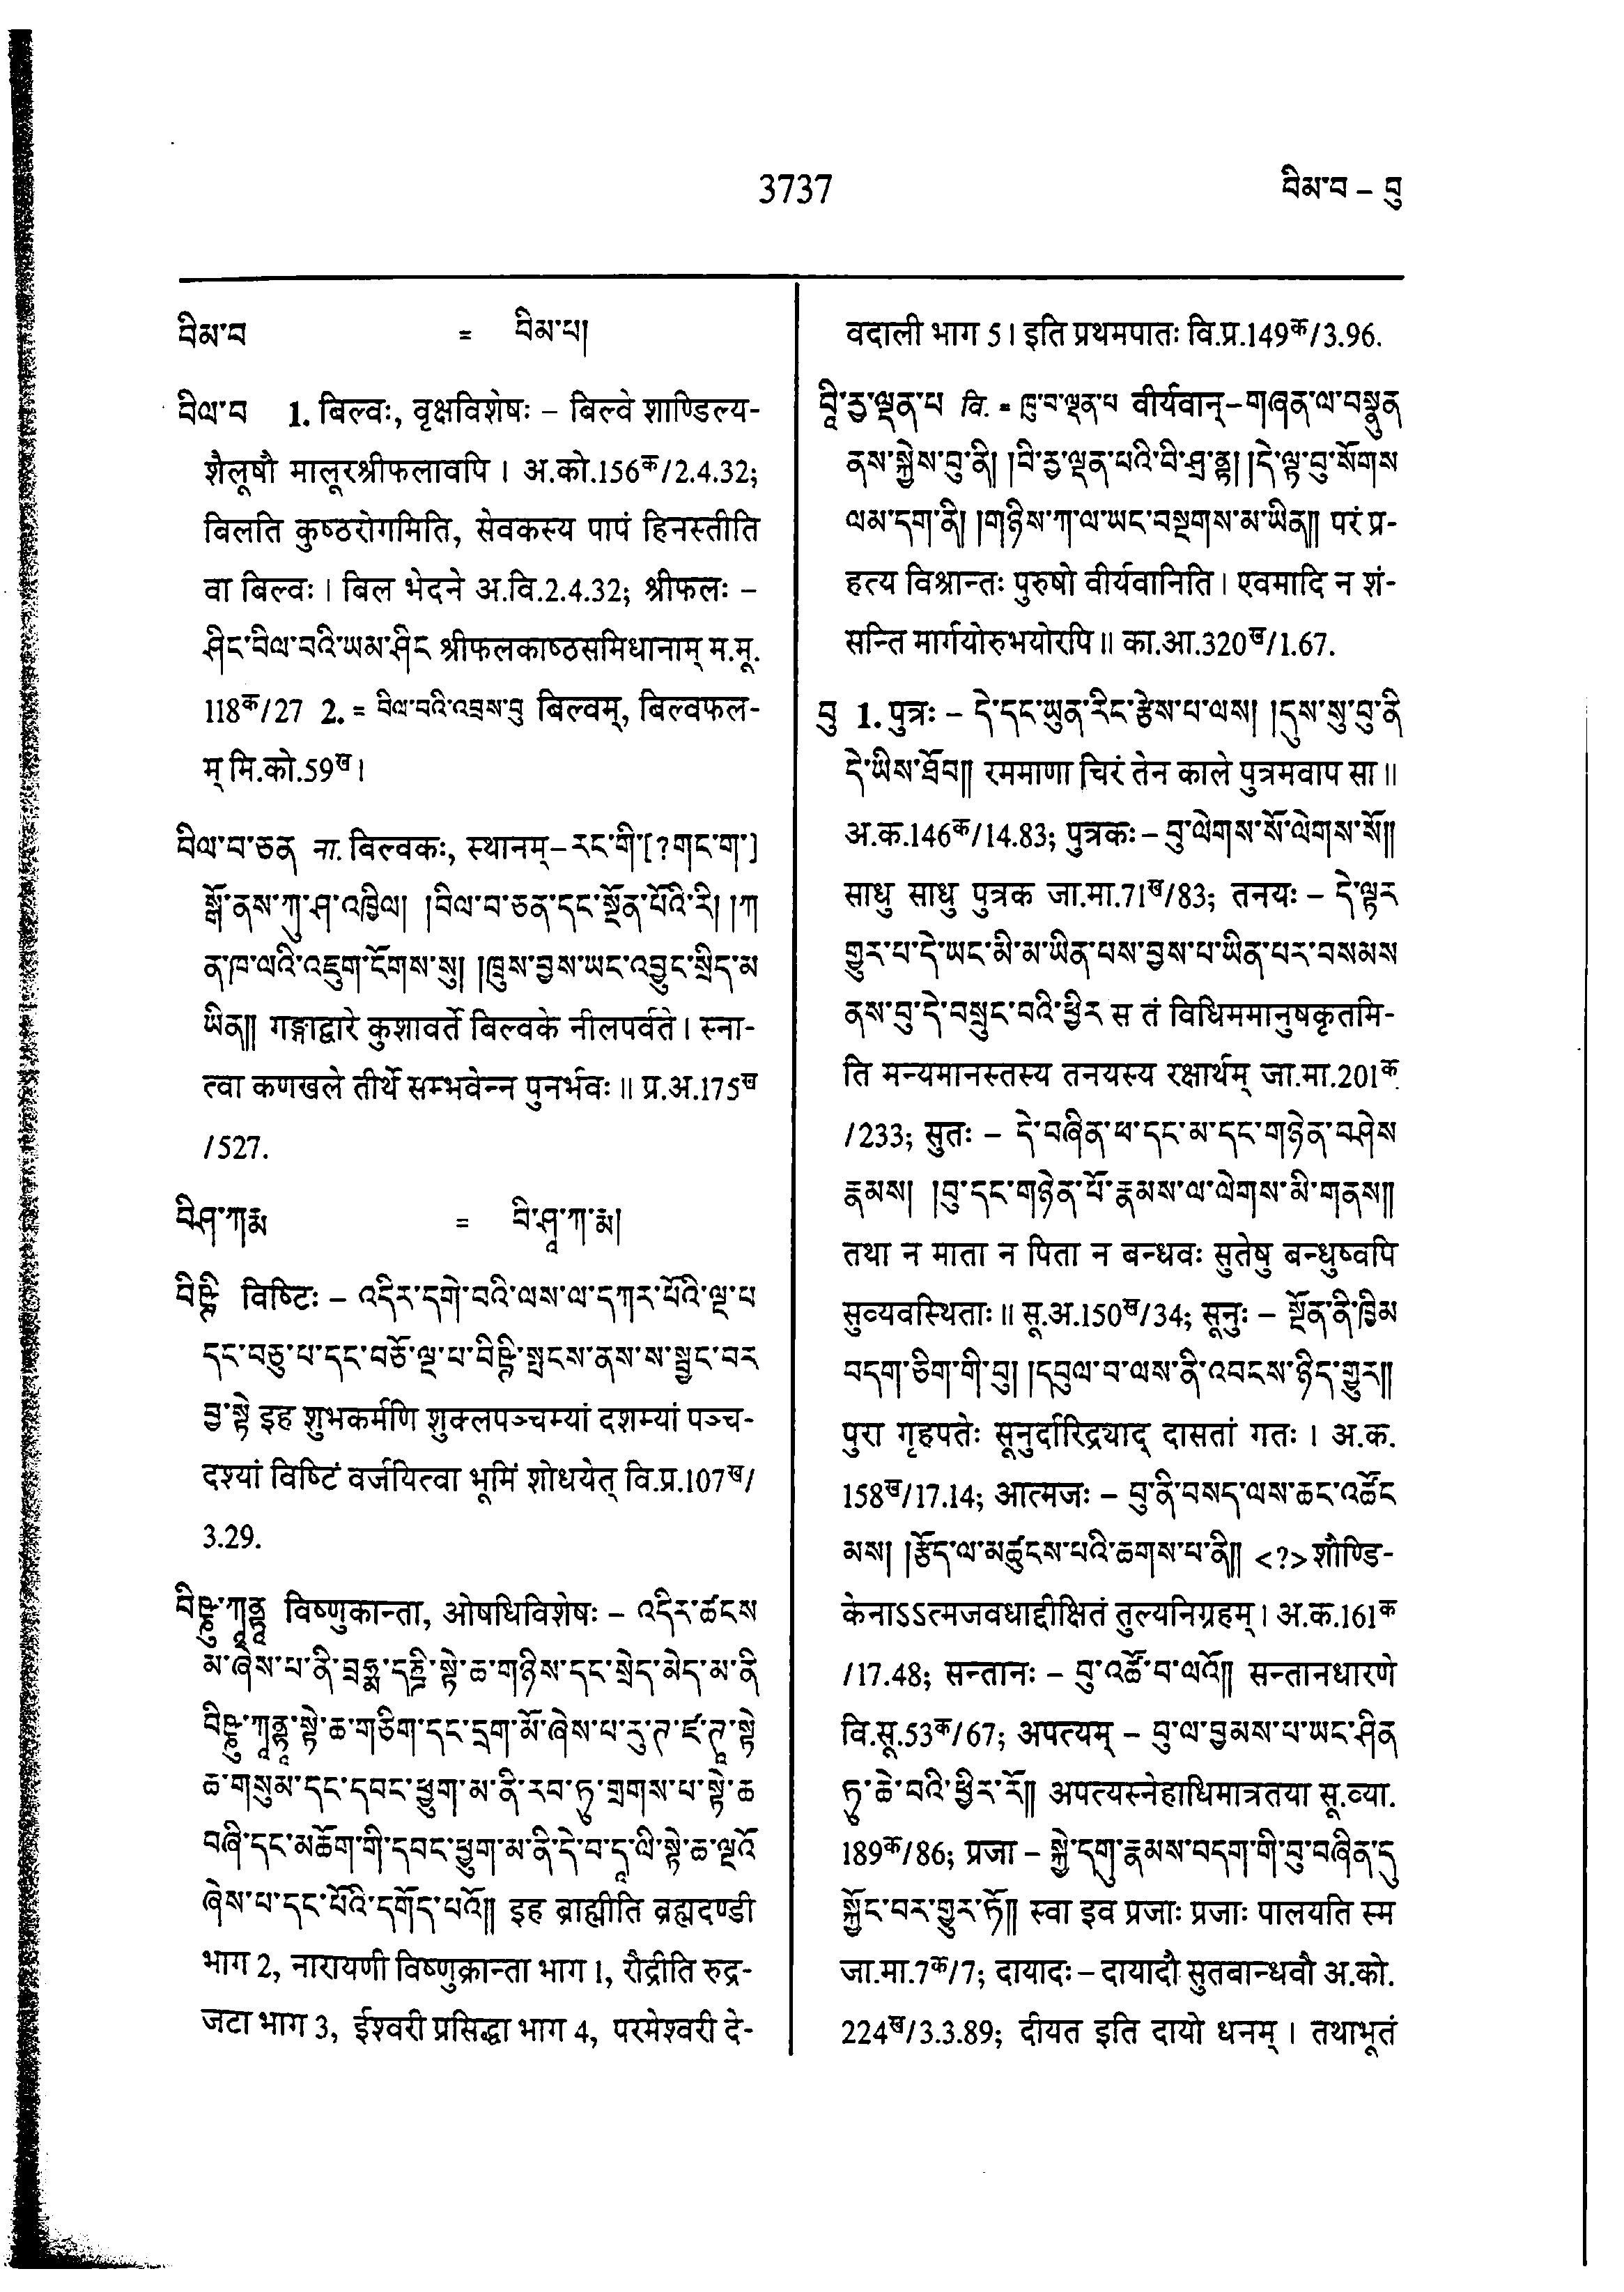 3737
བིམ་བ – བུ
བིམ་བ = བིམ་པ།
བིལ་བ 1. बिल्वः, वृक्षविशेषः – बिल्वे शाण्डिल्य-
शैलूषौ मालूरश्रीफलावपि । अ.को.156क/2.4.32;
बिलति कुष्ठरोगमिति, सेवकस्य पापं हिनस्तीति
वा बिल्वः । बिल भेदने अ.वि.2.4.32; श्रीफलः –
ཤིང་བིལ་བའི་ཡམ་ཤིང श्रीफलकाष्ठसमिधानाम् म.मू.
118क/27 2. = བིལ་བའི་འབྲས་བུ बिल्वम्, बिल्वफल-
म् मि.को.59ख।
བིལ་བ་ཅན ना. बिल्वकः, स्थानम् – རང་གི་[?གང་ག་]
སྒོ་ནས་ཀུ་ཤ་འཁྱིལ། །བིལ་བ་ཅན་དང་སྔོན་པོའི་རི། །ཀ
ན་ཁ་ལའི་འཇུག་ངོགས་སུ། །ཁྲུས་བྱས་ཡང་འབྱུང་སྲིད་མ
ཡིན།། गङ्गाद्वारे कुशावर्ते बिल्वके नीलपर्वते । स्ना-
त्वा कणखले तीर्थे सम्भवेन्न पुनर्भवः ॥ प्र.अ.175ख
/527.
བིཤ་ཀརྨ = བི་ཤྭ་ཀ་རྨ།
བིཥྚི विष्टिः – འདིར་དགེ་བའི་ལས་ལ་དཀར་པོའི་ལྔ་པ
དང་བཅུ་པ་དང་བཅོ་ལྔ་པ་བིཥྚི་སྤངས་ནས་ས་སྦྱང་བར
བྱ་སྟེ इह शुभकर्मणि शुक्लपञ्चम्यां दशम्यां पञ्च-
दश्यां विष्टिं वर्जयित्वा भूमिं शोधयेत् वि.प्र.107ख/
3.29.
བིཥྞུ་ཀྲཱནྟཱ विष्णुकान्ता, ओषधिविशेषः – འདིར་ཚངས
མ་ཞེས་པ་ནི་བྲཧྨ་དཎྜི་སྟེ་ཆ་གཉིས་དང་སྲེད་མེད་མ་ནི
བིཥྞུ་ཀྲཱནྟཱ་སྟེ་ཆ་གཅིག་དང་དྲག་མོ་ཞེས་པ་རུ་ཏྲ་ཛ་ཊཱ་སྟེ
ཆ་གསུམ་དང་དབང་ཕྱུག་མ་ནི་རབ་ཏུ་གྲགས་པ་སྟེ་ཆ
བཞི་དང་མཆོག་གི་དབང་ཕྱུག་མ་ནི་དེ་བ་དཱ་ལི་སྟེ་ཆ་ལྔའོ
ཞེས་པ་དང་པོའི་དགོད་པའོ།། इह ब्राह्मीति ब्रह्मदण्डी
भाग 2, नारायणी विष्णुक्रान्ता भाग 1, रौद्रीति रुद्र-
जटा भाग 3, ईश्वरी प्रसिद्धा भाग 4, परमेश्वरी दे-
वदाली भाग 5। इति प्रथमपातः वि.प्र.149क/3.96.
བཱི་རྱ་ལྡན་པ वि. = ཁུ་བ་ལྡན་པ वीर्यवान् – གཞན་ལ་བསྣུན
ནས་སྐྱེས་བུ་ནི། །བི་རྱ་ལྡན་པའི་བི་ཤྲ་ནྟ། །དེ་ལྟ་བུ་སོགས
ལམ་དག་ནི། །གཉིས་ཀ་ལ་ཡང་བསྔགས་མ་ཡིན།། परं प्र-
हत्य विश्रान्तः पुरुषो वीर्यवानिति । एवमादि न शं-
सन्ति मार्गयोरुभयोरपि ॥ का.आ.320ख/1.67.
བུ 1. पुत्रः – དེ་དང་ཡུན་རིང་རྩེས་པ་ལས། །དུས་སུ་བུ་ནི
དེ་ཡིས་ཐོབ།། रममाणा चिरं तेन काले पुत्रमवाप सा ॥
अ.क.146क/14.83; पुत्रकः – བུ་ལེགས་སོ་ལེགས་སོ།།
साधु साधु पुत्रक जा.मा.71ख/83; तनयः – དེ་ལྟར
གྱུར་པ་དེ་ཡང་མི་མ་ཡིན་པས་བྱས་པ་ཡིན་པར་བསམས
ནས་བུ་དེ་བསྲུང་བའི་ཕྱིར स तं विधिममानुषकृतमि-
ति मन्यमानस्तस्य तनयस्य रक्षार्थम् जा.मा.201क
/233; सुतः – དེ་བཞིན་ཕ་དང་མ་དང་གཉེན་བཤེས
རྣམས། །བུ་དང་གཉེན་པོ་རྣམས་ལ་ལེགས་མི་གནས།།
तथा न माता न पिता न बन्धवः सुतेषु बन्धुष्वपि
सुव्यवस्थिताः ॥ सू.अ.150ख/34; सूनुः – སྔོན་ནི་ཁྱིམ
བདག་ཅིག་གི་བུ། །དབུལ་བ་ལས་ནི་འབངས་ཉིད་གྱུར།།
पुरा गृहपतेः सूनुर्दारिद्र्याद् दासतां गतः । अ.क.
158ख/17.14; आत्मजः – བུ་ནི་བསད་ལས་ཆང་འཚོང
མས། །རྩོད་ལ་མཚུངས་པའི་ཆགས་པ་ནི།། <?> शौण्डि-
केनाऽऽत्मजवधाद्दीक्षितं तुल्यनिग्रहम् । अ.क.161क
/17.48; सन्तानः – བུ་འཚོ་བ་ལའོ།། सन्तानधारणे
वि.सू.53क/67; अपत्यम् – བུ་ལ་བྱམས་པ་ཡང་ཤིན
ཏུ་ཆེ་བའི་ཕྱིར་རོ།། अपत्यस्नेहाधिमात्रतया सू.व्या.
189क/86; प्रजा – སྐྱེ་དགུ་རྣམས་བདག་གི་བུ་བཞིན་དུ
སྐྱོང་བར་གྱུར་ཏོ།། स्वा इव प्रजाः प्रजाः पालयति स्म
जा.मा.7क/7; दायादः – दायादौ सुतबान्धवौ अ.को.
224ख/3.3.89; दीयत इति दायो धनम् । तथाभूतं